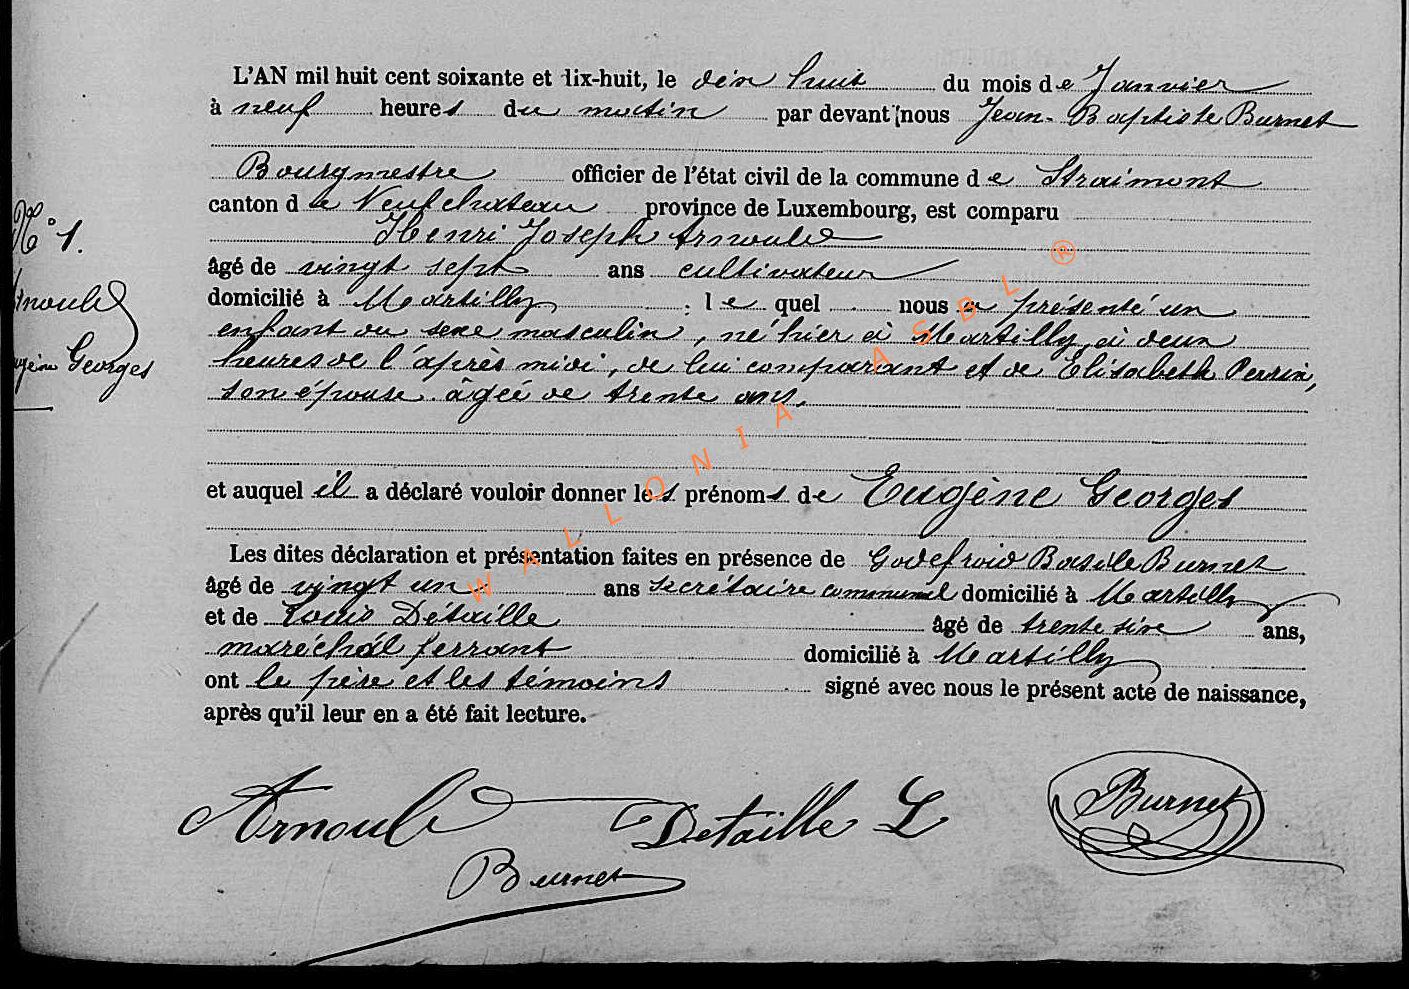 L'AN mil huit cent soixante et dix-huit, le dix huit du mois de Janvier
à neuf heures du matin par devant nous Jean-Baptiste Burnet
Bourgmestre officier de l'état civil de la commune de Straimont
canton de Neufchateau province de Luxembourg, est comparu
Henri Joseph Arnould
âgé de vingt sept ans cultivateur
domicilié à Martilly ; le quel nous a présenté un
enfant du sexe masculin, né hier à Martilly, à deux
heures de l'après midi, de lui comparant et de Elisabeth Perrin,
son épouse âgée de trente ans,
et auquel il a déclaré vouloir donner les prénoms de Eugène Georges
Les dites déclaration et présentation faites en présence de Godefroid Basile Burnet
âgé de vingt un ans secrétaire communal domicilié à Martilly
et de Louis Détaille âgé de trente six ans,
maréchal ferrant domicilié à Martilly
ont le père et les témoins signé avec nous le présent acte de naissance,
après qu'il leur en a été fait lecture.
N° 1.
Georges
Arnould Detaille L Burnet
Burnet
WALLONIA ASBL ®